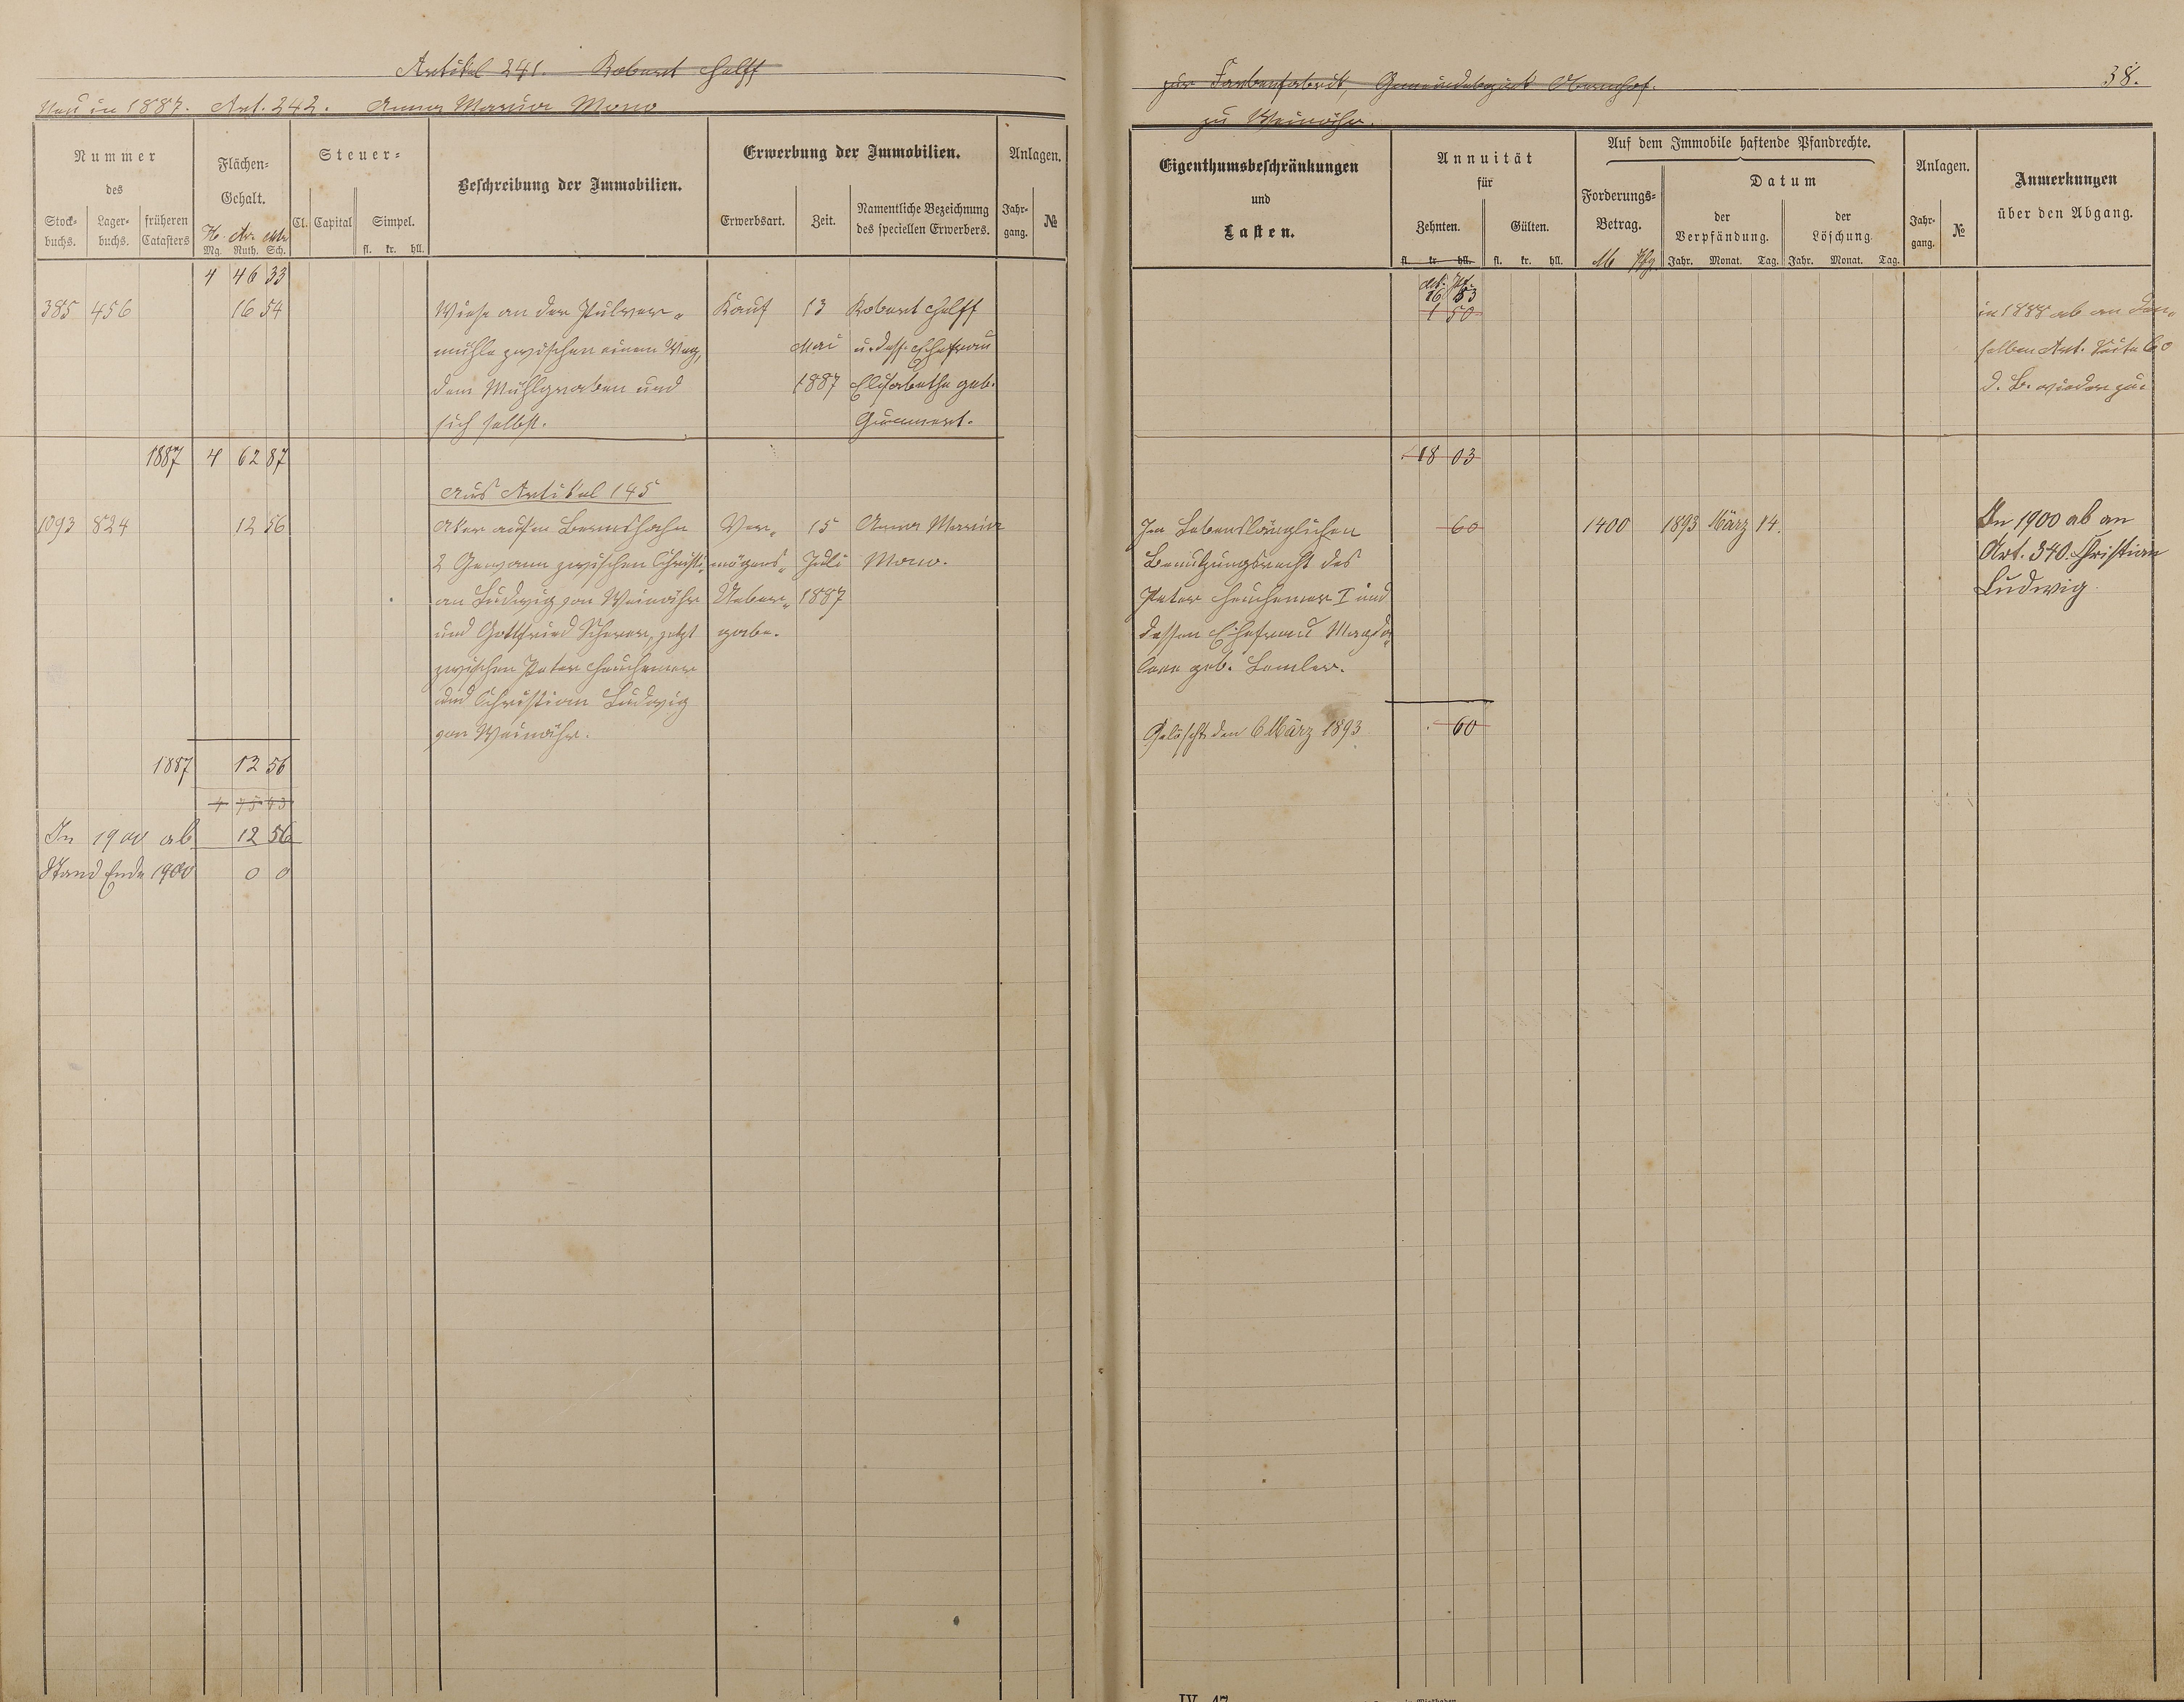 Artikel 241. Robert Helff
Neu in 1887. Art. 242. Anna Maria Mono
zur Farbenfabrik, Gemeindebezirk Obernhof.
38.
zu Weinähr.
Nummer
des
Stock-
buchs.
Lager-
buchs.
früheren
Catasters
Flächen-
Gehalt.
H. Ar. Mtr.
Mg. Ruth. Sch.
Steuer-
Cl. Capital Simpel.
fl. kr. hll.
Beschreibung der Immobilien.
Erwerbung der Immobilien.
Erwerbsart. Zeit.
Namentliche Bezeichnung
des speciellen Erwerbers.
Anlagen.
Jahr-
gang.
№
Eigenthumsbeschränkungen
und
Lasten.
Annuität
für
Zehnten. Gülten.
fl. kr. hll. fl. kr. hll.
Auf dem Immobile haftende Pfandrechte.
Forderungs-
Betrag.
M Pfg
Datum
der
Verpfändung.
der
Löschung.
Jahr. Monat. Tag. Jahr. Monat. Tag.
Anlagen.
Jahr-
gang.
№
Anmerkungen
über den Abgang.
4 46 33
385 456 16 54 Wiese an der Pulver-
mühle zwischen einem Weg,
dem Mühlgraben und
sich selbst.
Kauf
13
Mai
1887
Robert Helff
u. dess. Ehefrau
Elisabethe geb.
Mk. Pf.
16 53
1 50
in 1888 ab an den-
selben Art. Seite 60
d. B. wieder zu.
1887 4 62 87
18 03
Aus Artikel 145
1093 824 12 56 Aker aufm
2 Gewann zwischen Christi-
an Ludwig von Weinähr
und Gottfried Scherer, jetzt
zwischen Peter Heuchemer
und Christian Ludwig
von Weinähr.
Ver-
mögens-
Ueber-
gabe.
15
Juli
1887
Anna Maria
Mono.
Im Lebenslänglichen
Benutzungsrecht des
Peter Heuchemer I und
dessen Ehefrau Magda-
lene geb. Lemler.
60
1400 1893 März 14.
In 1900 ab an
Art. 340. Christian
Ludwig
Gelöscht den 6 März 1893
60
1887 12 56
4 75 43
In 1900 ab 12 56
Stand Ende 1900 0 0
IV. 17